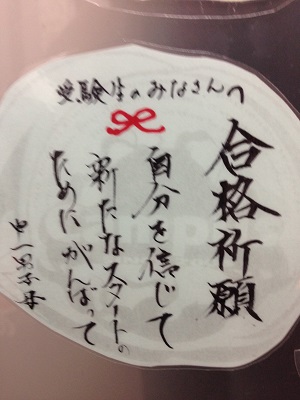 受験生のみなさんへ
合格祈願
自分を信じて
新たなスタートの
ためにがんばって